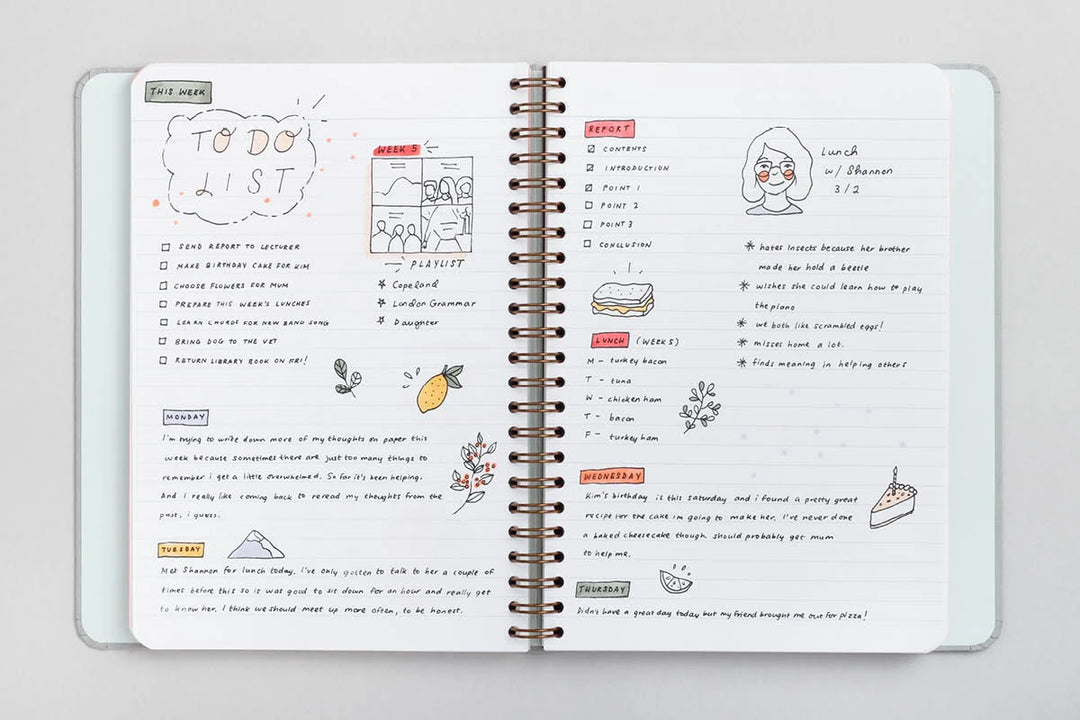 THIS WEEK
TO DO
LIST
WEEK 5
PLAYLIST
Copeland
London Grammar
Daughter
SEND REPORT TO LECTURER
MAKE BIRTHDAY CAKE FOR KIM
CHOOSE FLOWERS FOR MUM
PREPARE THIS WEEK'S LUNCHES
LEARN CHORDS FOR NEW BAND SONG
BRING DOG TO THE VET
RETURN LIBRARY BOOK ON FRI!
MONDAY
I'm trying to write down more of my thoughts on paper this
week because sometimes there are just too many things to
remember i get a little overwhelmed. So far it's been helping.
And i really like coming back to reread my thoughts from the
past, i guess.
TUESDAY
Met Shannon for lunch today. I've only gotten to talk to her a couple of
times before this so it was good to sit down for an hour and really get
to know her. I think we should meet up more often, to be honest.
REPORT
CONTENTS
INTRODUCTION
POINT 1
POINT 2
POINT 3
CONCLUSION
Lunch
w/ Shannon
3/2
hates insects because her brother
made her hold a beetle
wishes she could learn how to play
the piano
we both like scrambled eggs!
misses home a lot.
finds meaning in helping others
LUNCH (WEEK 5)
M - turkey bacon
T - tuna
W - chicken ham
T - bacon
F - turkey ham
WEDNESDAY
Kim's birthday is this saturday and i found a pretty great
recipe for the cake im going to make her. I've never done
a baked cheesecake though. should probably get mum
to help me.
THURSDAY
Didn't have a great day today but my friend brought me out for pizza!